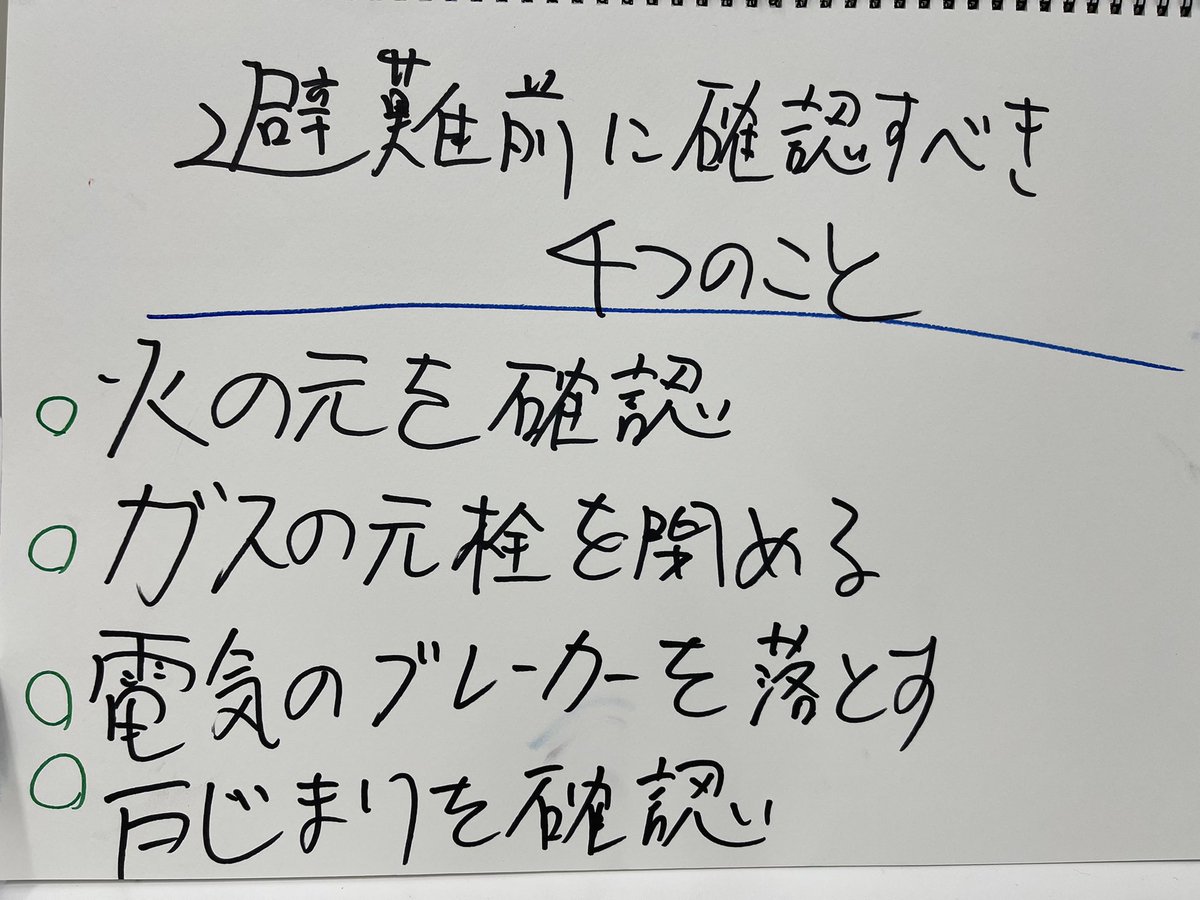 避難前に確認すべき
4つのこと
○火の元を確認
○ガスの元栓を閉める
○電気のブレーカーを落とす
○戸じまりを確認